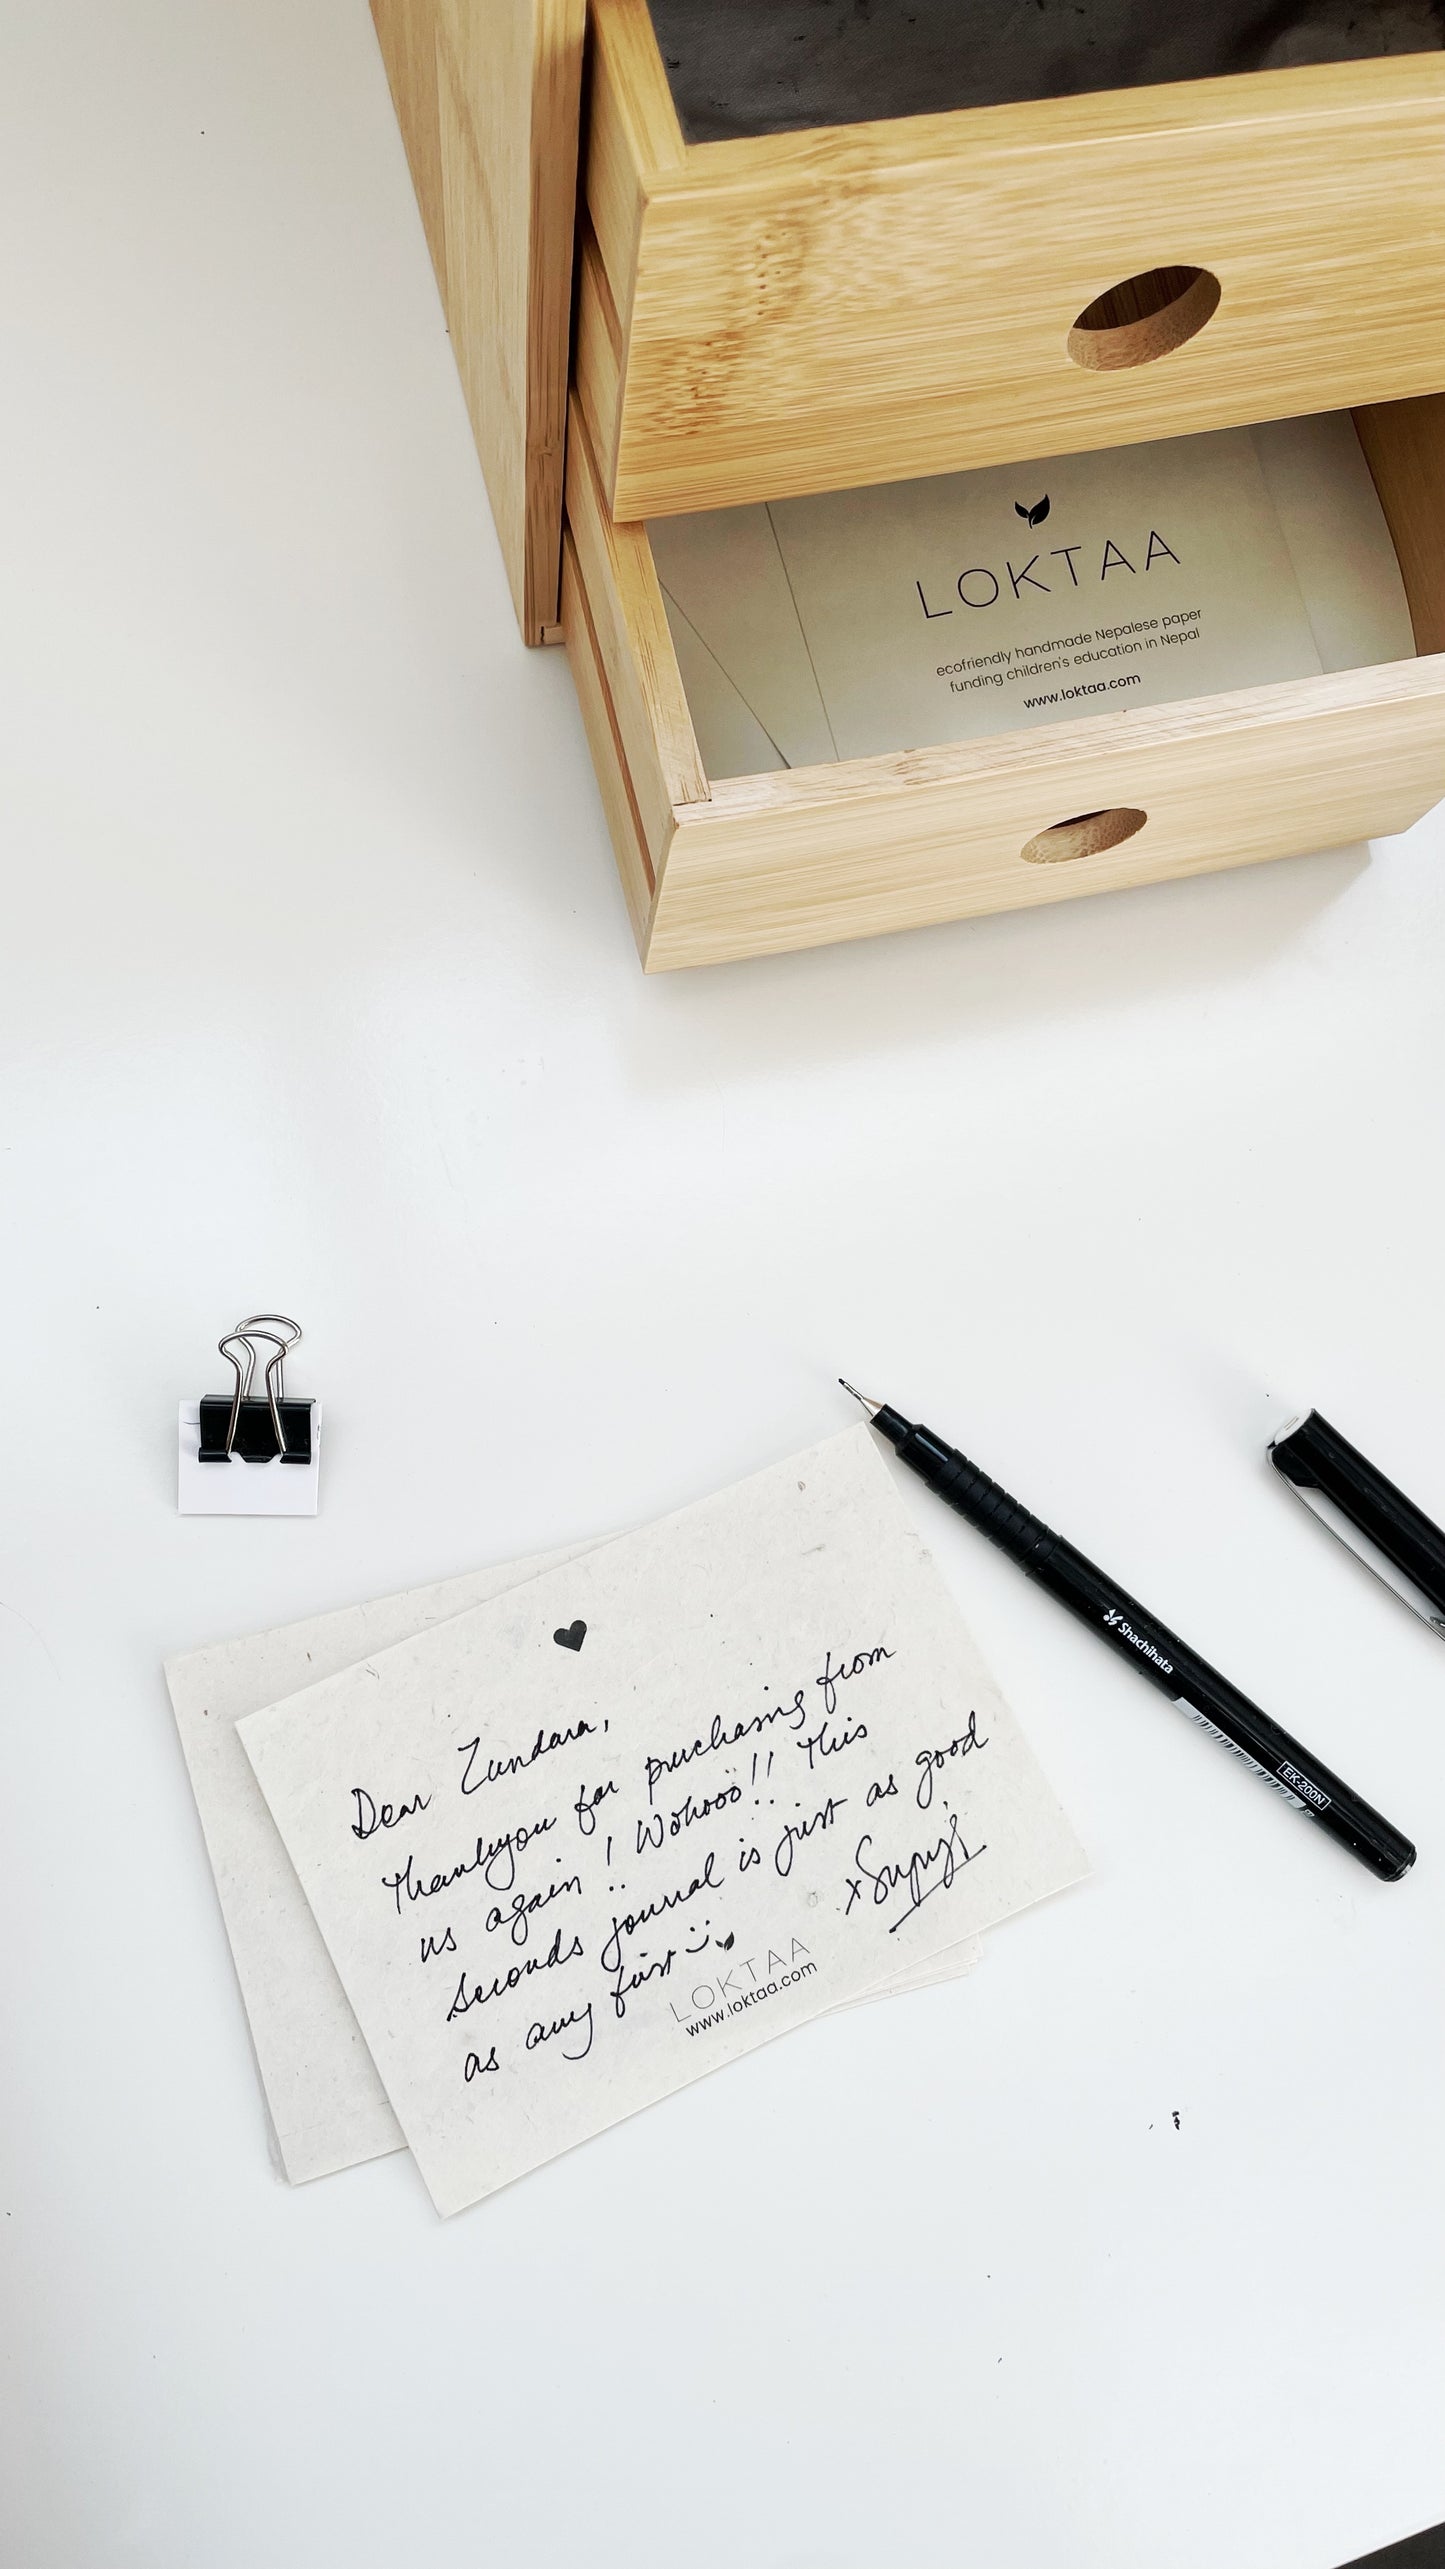 LOKTAA
ecofriendly handmade Nepalese paper
funding children's education in Nepal
www.loktaa.com
Shachihata
EK-200N
Dear Zundara,
Thankyou for purchasing from
us again! Wohooo!! This
seconds journal is just as good
as any first
LOKTAA
www.loktaa.com